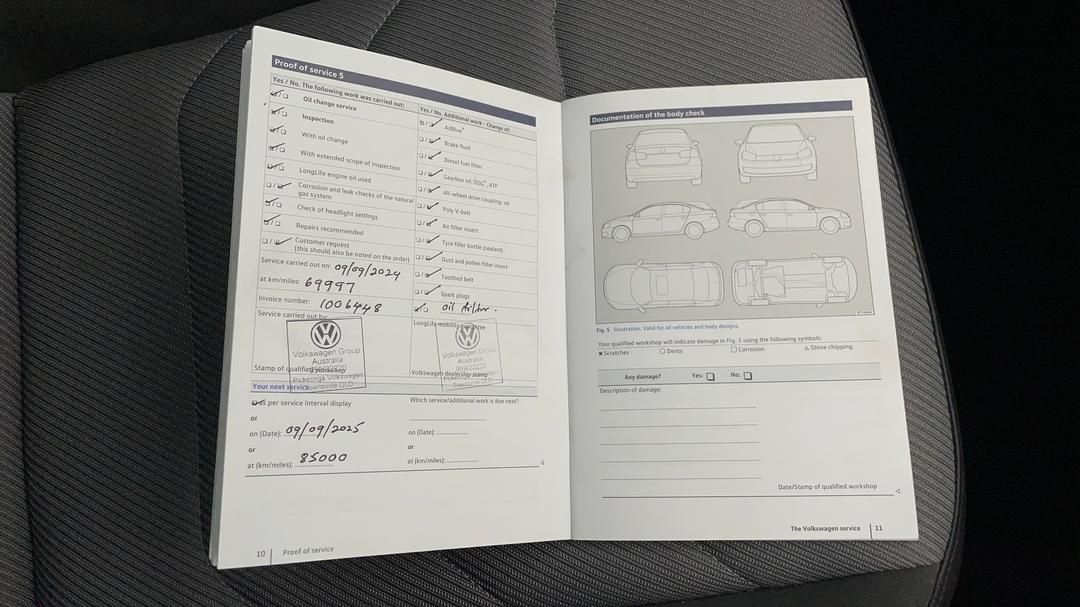 Proof of service 5
Yes / No. The following work was carried out:
Oil change service
Inspection
With oil change
With extended scope of inspection
LongLife engine oil used
Corrosion and leak checks of the natural
gas system
Check of headlight settings
Repairs recommended
Customer request
(this should also be noted on the order)
Service carried out on: 09/09/2024
at km/miles: 69997
Invoice number: 1006448
Service carried out by:
Volkswagen Group
Australia
Pickerings Volkswagen
Townsville QLD
Stamp of qualified workshop
Yes / No. Additional work - Change of:
AdBlue®
Brake fluid
Diesel fuel filter
Gearbox oil: DSG®, ATF
All-wheel drive coupling: oil
Poly V-belt
Air filter insert
Tyre filler bottle (sealant)
Dust and pollen filter insert
Toothed belt
Spark plugs
oil filter.
LongLife mobility guarantee
Volkswagen Group
Australia
Pickerings Volkswagen
Townsville QLD
Volkswagen dealership stamp
Your next service:
as per service interval display
or
on (Date): 09/09/2025
or
at (km/miles): 85000
Which service/additional work is due next?
on (Date):
or
at (km/miles):
10 Proof of service
Documentation of the body check
Fig. 5 Illustration. Valid for all vehicles and body designs.
Your qualified workshop will indicate damage in Fig. 5 using the following symbols:
× Scratches ○ Dents □ Corrosion △ Stone chipping
Any damage? Yes: No:
Description of damage:
Date/Stamp of qualified workshop
The Volkswagen service 11